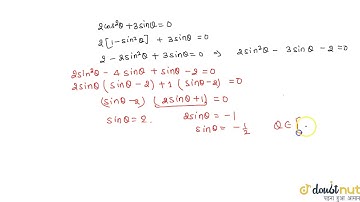 2cos²θ + 3sinθ = 0
2[1 - sin²θ] + 3sinθ = 0
2 - 2sin²θ + 3sinθ = 0 ⇒ 2sin²θ - 3sinθ - 2 = 0
2sin²θ - 4sinθ + sinθ - 2 = 0
2sinθ (sinθ - 2) + 1 (sinθ - 2) = 0
(sinθ - 2) (2sinθ + 1) = 0
sinθ = 2. 2sinθ = -1
sinθ = -1/2 θ ∈ [
doubtnut
पढ़ना हुआ आसान